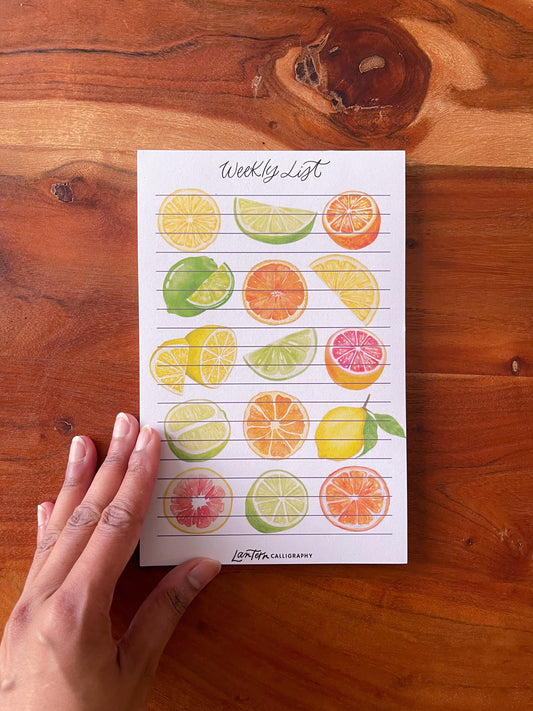 Weekly List
Lantern CALLIGRAPHY